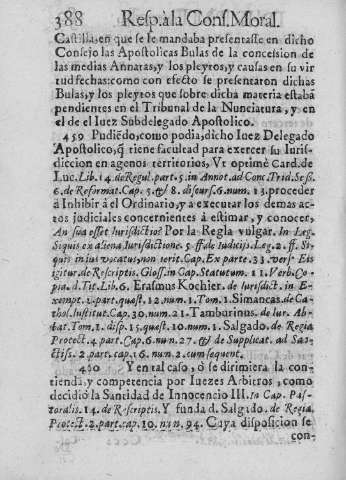 388 Resp. à la Cons. Moral.
Castilla, en que se le mandaba presentasse en dicho
Consejo las Apostolicas Bulas de la concession de
las medias Annatas, y los pleytos, y causas en su vir
tud fechas: como con efecto se presentaron dichas
Bulas, y los pleytos que sobre dicha materia estabã
pendientes en el Tribunal de la Nunciatura, y en
el de el Iuez Subdelegado Apostolico.
459 Pudiẽdo, como podia, dicho Iuez Delegado
Apostolico, q̃ tiene facultad para exercer su Iuris-
diccion en agenos territorios, Vt optimè Card. de
Luc. Lib. 14. de Regul. part. 5. in Annot. ad Conc. Trid. Sess.
6. de Reformat. Cap. 5. & 8. discurs. 6. num. 13. proceder
à Inhibir à el Ordinario, y a executar los demas ac-
tos judiciales concernientes à estimar, y conocer,
An sua esset Iurisdictio? Por la Regla vulgar. In Leg.
Siquis ex aliena Iurisdictione. 5. ff. de Iudicijs. Leg. 2. ff. Si-
quis in ius vocatus, non ierit. Cap. Ex parte. 33. vers. Et si
igitur. de Rescriptis. Gloss. in Cap. Statutum. 11. Verb. Co-
pia. d. Tit. Lib. 6. Erasmus Kochier. de Iurisdict. in E-
xempt. 1. part. quæst. 12. num. 1. Tom. 1. Simancas. de Ca-
thol. Institut. Cap. 30. num. 21. Tamburinus. de Iur. Ab-
bat. Tom. 1. disp. 15. quæst. 10. num. 1. Salgado. de Regia
Protect. 4. part. Cap. 6. num. 27. & de Supplicat. ad Sanc-
tiss. 2. part. cap. 16. num. 2. cum sequent.
460 Y en tal caso, ò se dirimiera la con-
tienda, y competencia por Iuezes Arbitros, como
decidió la Santidad de Innocencio III. In Cap. Pas-
toralis. 14. de Rescriptis. Y funda d. Salgado. de Regia
Protect. 2. part. cap. 10. num. 94. Cuya disposicion se
con-